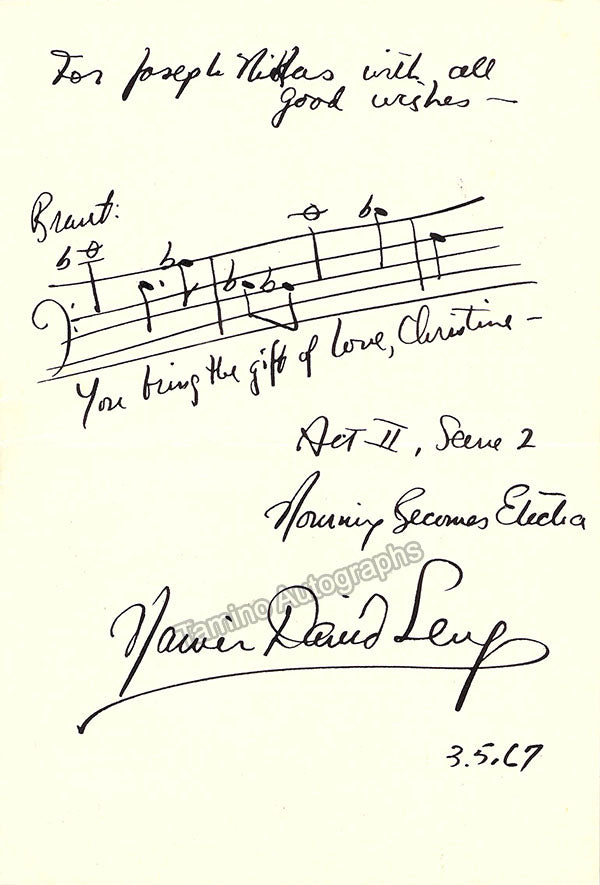 For Joseph with all
good wishes —
Brant:
You bring the gift of love, Christine —
Act II, Scene 2
Mourning Becomes Electra
Tamino Autographs
Marvin David Levy
3.5.67